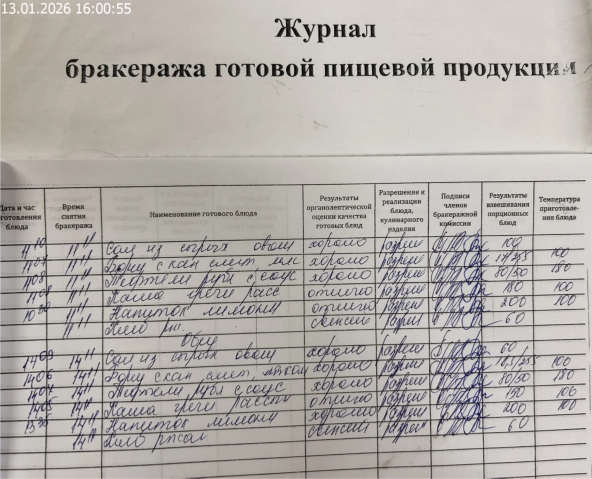 13.01.2026 16:00:55
Журнал
бракеража готовой пищевой продукции
Дата и час готовления блюда
Время снятия бракеража
Наименование готового блюда
Результаты органолептической оценки качества готовых блюд
Разрешение к реализации блюда, кулинарного изделия
Подписи членов бракеражной комиссии
Результаты взвешивания порционных блюд
Температура приготовле- ния блюда
11 10 11 11 Сал из сырых овощ хорошо разреш 100
11 11 Борщ с кап смет хорошо разреш 100
11 08 11 11 Тефтели рубл с соус хорошо разреш 80/50 180
11 08 11 11 Каша гречн расс отлично разреш 180 100
10 50 11 11 Напиток лимонн отлично разреш 200 100
11 11 Хлеб рж. 60
Обед
14 09 14 11 Сал из сырых овощ хорошо разреш 60
14 06 14 11 Борщ с кап смет, хорошо разреш 100
14 07 14 11 Тефтели рубл с соус хорошо разреш 80/50 180
14 05 14 11 Каша гречн рассып отлично разреш 150 100
13 30 14 11 Напиток лимонн хорошо разреш 200 100
14 11 Хлеб разреш 60